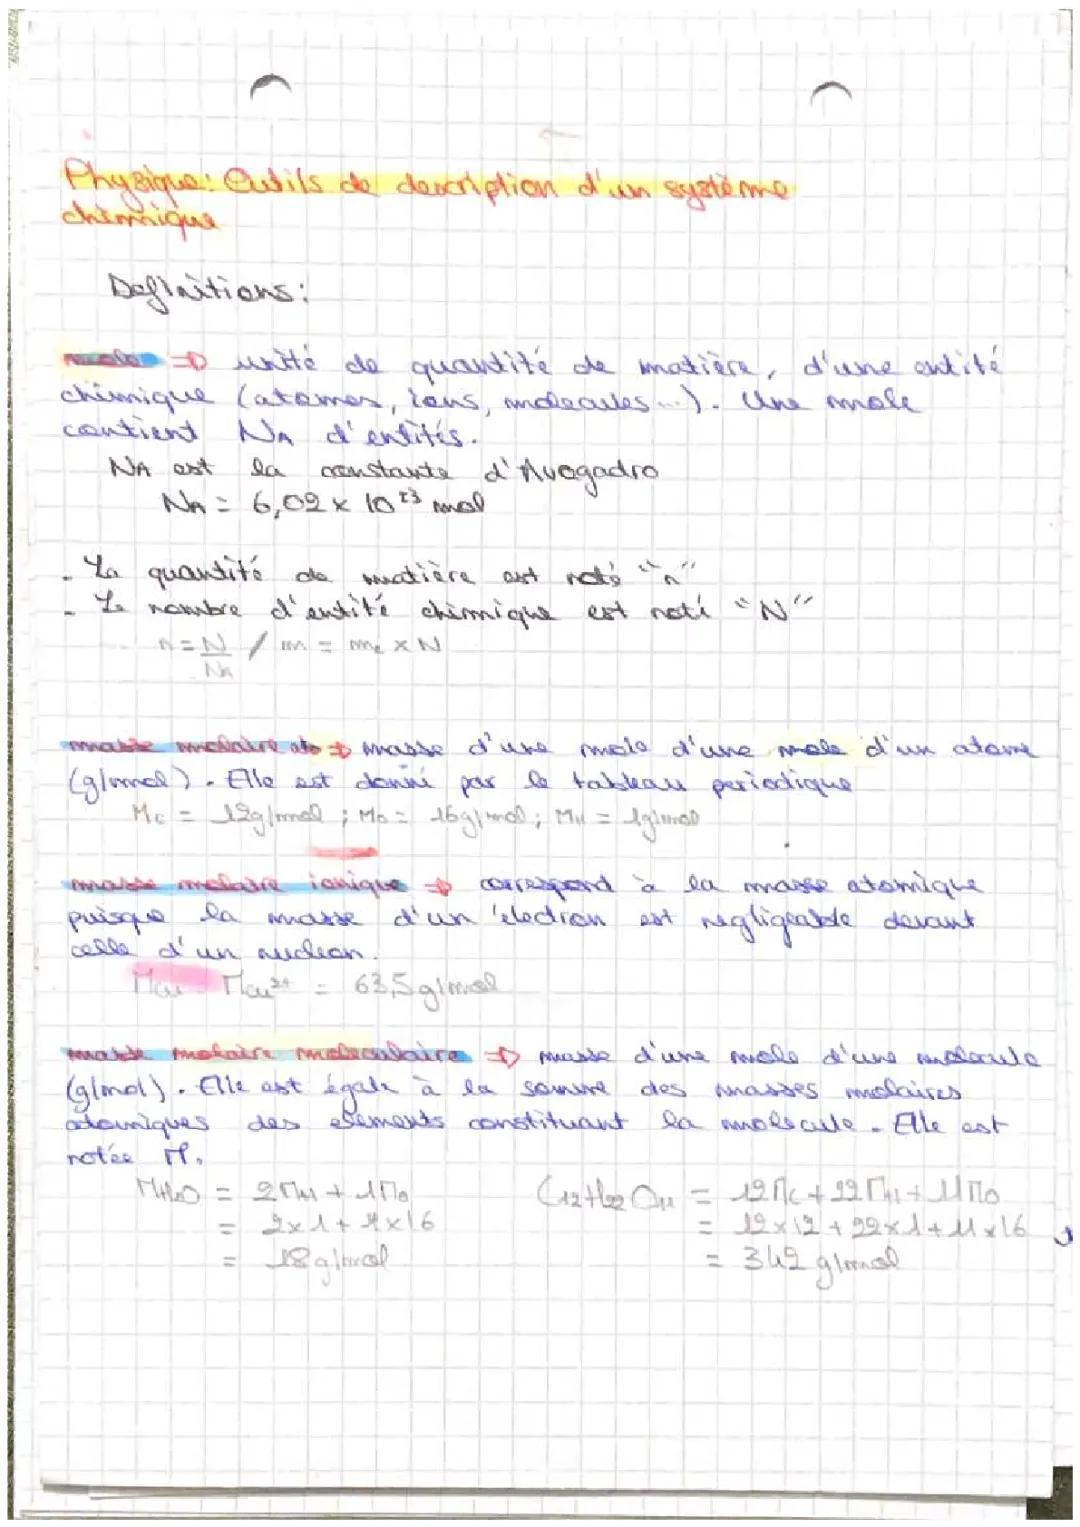 Physique: Outils de description d'un système
chimique
Definitions:
mole => unité de quantité de matière, d'une entité
chimique (atomes, ions, molécules...). Une mole
contient NA d'entités.
NA est la constante d'Avogadro
NA = 6,02 x 10²³ mol
- La quantité de matière est noté "n"
- Le nombre d'entité chimique est noté "N"
n = N/NA / m = me x N
masse molaire ato => masse d'une mole d'une mole d'un atome
(g/mol). Elle est donné par le tableau periodique
Mc = 12g/mol ; Mo = 16g/mol ; MH = 1g/mol
masse molaire ionique => correspond à la masse atomique
puisque la masse d'un électron est negligeable devant
celle d'un nucleon.
Mcu = Mcu²⁺ = 63,5 g/mol
masse molaire moleculaire => masse d'une mole d'une molecule
(g/mol). Elle est égale à la somme des masses molaires
atomiques des elements constituant la molecule. Elle est
notée M.
MH₂O = 2MH + 1Mo
= 2x1 + 1x16
= 18 g/mol
C₁₂H₂₂O₁₁ = 12Mc + 22MH + 11Mo
= 12x12 + 22x1 + 11x16
= 342 g/mol